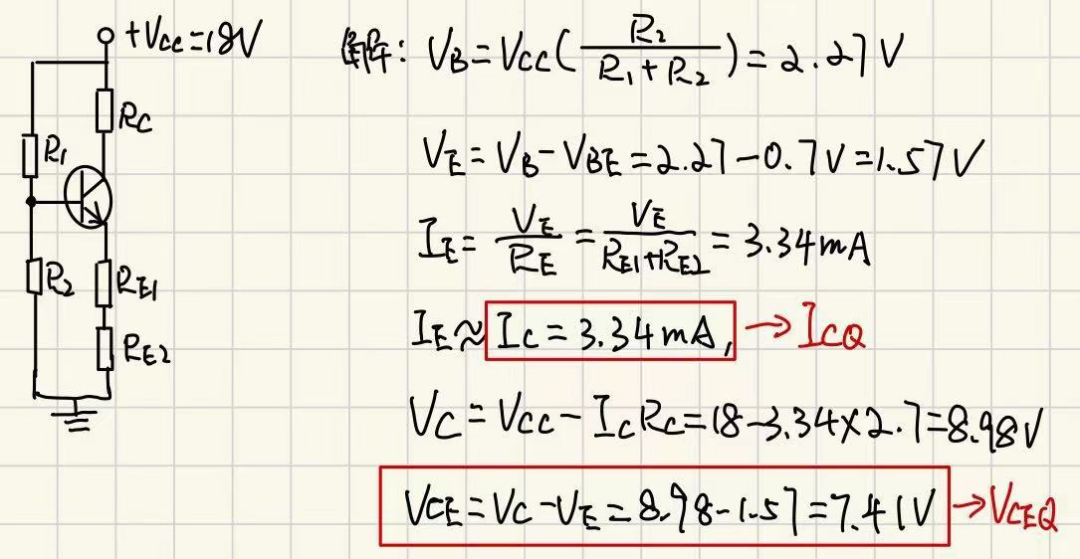 +Vcc=18V
Rc
R1
R2
RE1
RE2
解: VB=Vcc(R2/(R1+R2))=2.27V
VE=VB-VBE=2.27-0.7V=1.57V
IE=VE/RE=VE/(RE1+RE2)=3.34mA
IE≈Ic=3.34mA, →ICQ
Vc=Vcc-IcRc=18-3.34×2.7=8.98V
VCE=Vc-VE=8.98-1.57=7.41V→VCEQ